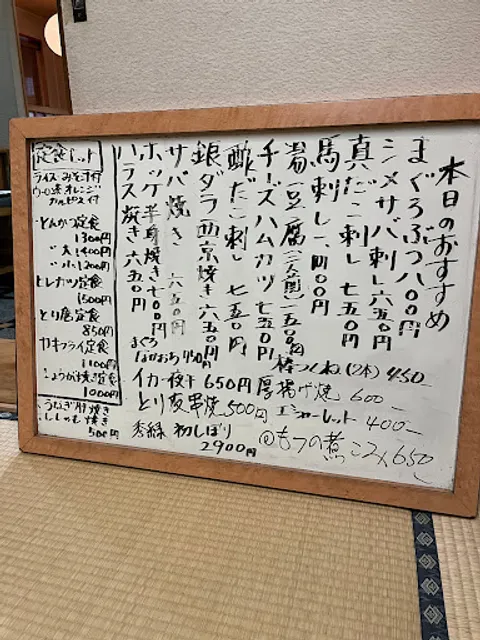 本日のおすすめ
まぐろぶつ 八〇〇円
シメサバ刺し 六五〇円
真だこ刺し 七五〇円
馬刺し 一、四〇〇円
湯豆腐(二人前) 一五〇〇円
チーズハムカツ 七五〇円
酢だこ刺し 七五〇円
銀ダラ西京焼き 六五〇円
サバ焼き 六五〇円
ホッケ半身焼き 七〇〇円
ハラス焼き 六五〇円
まぐろ
なめおろ 450円
イカ一夜干 650円
とり皮串焼 500円
秀緑 初しぼり
2900円
棒つくね(2本) 450-
厚揚げ焼 600-
エシャーレット 400-
@もつの煮こみ 650
定食セット
ライス・みそ汁付
ウーロン茶 オレンジ
カルピス 付
とんかつ定食
1300円
〃 大 1400円
〃 小 1200円
ヒレカツ定食
1500円
とり唐定食
850円
カキフライ定食
1100円
しょうが焼き定食
1000円
うなぎ肝焼き
ししゃも焼き
500円